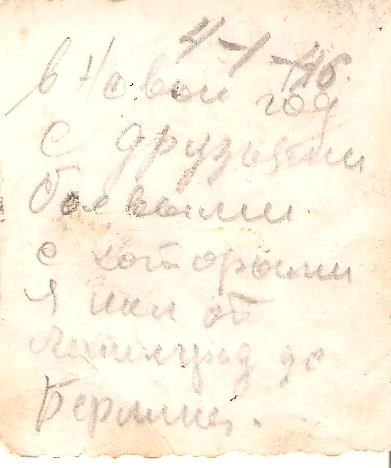 4-1-46.
в Новый год
с друзьями
боевыми
с которыми
я шёл от
Ленинград до
Берлина.